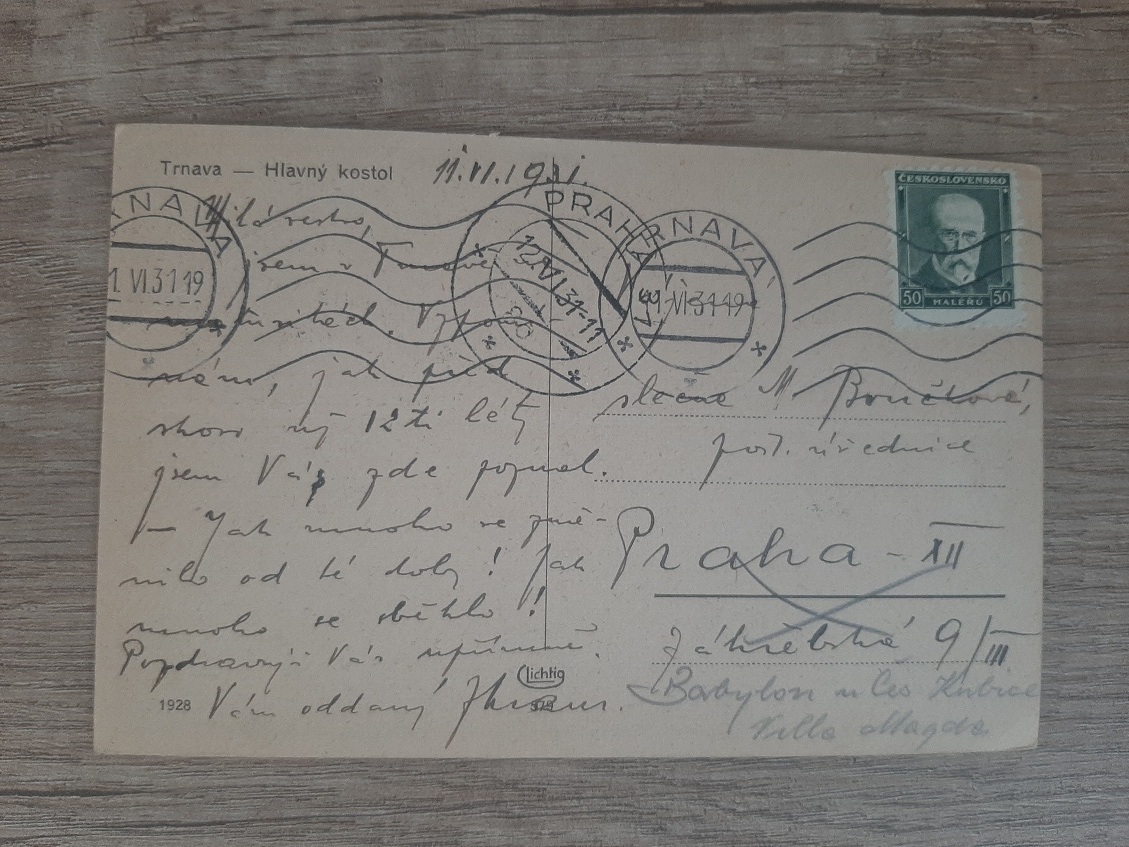 Trnava — Hlavný kostol
11.VI.1931
Milá sestro,
jsem v Trnavě
maturitách. Vzpomí-
nám, jak před
skoro již 12ti léty
jsem Vás zde poznal.
— Jak mnoho se změ-
nilo od té doby! Jak
mnoho se sběhlo!
Pozdravuji Vás upřímně.
Vám oddaný
1928
Lichtig
TRNAVA
11.VI.31-19
PRAHA
12.VI.31-11
TRNAVA
11.VI.31-19
ČESKOSLOVENSKO
50 HALÉŘŮ 50
slečně M. Broučková,
pošt. úřednice
Praha - XII
Záhřebská 9/III.
Babylon u Čes Kubice
Villa Magda